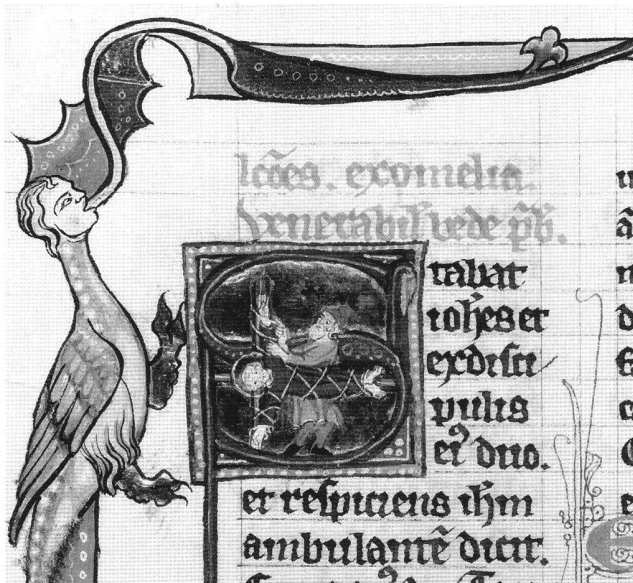 lcc̄es. exomelia.
venerabil' bede p̄b.
Stabat
ioh̄es et
ex disci
pulis
ei⁹ duo.
et respiciens ih̄m
ambulantē dicit.